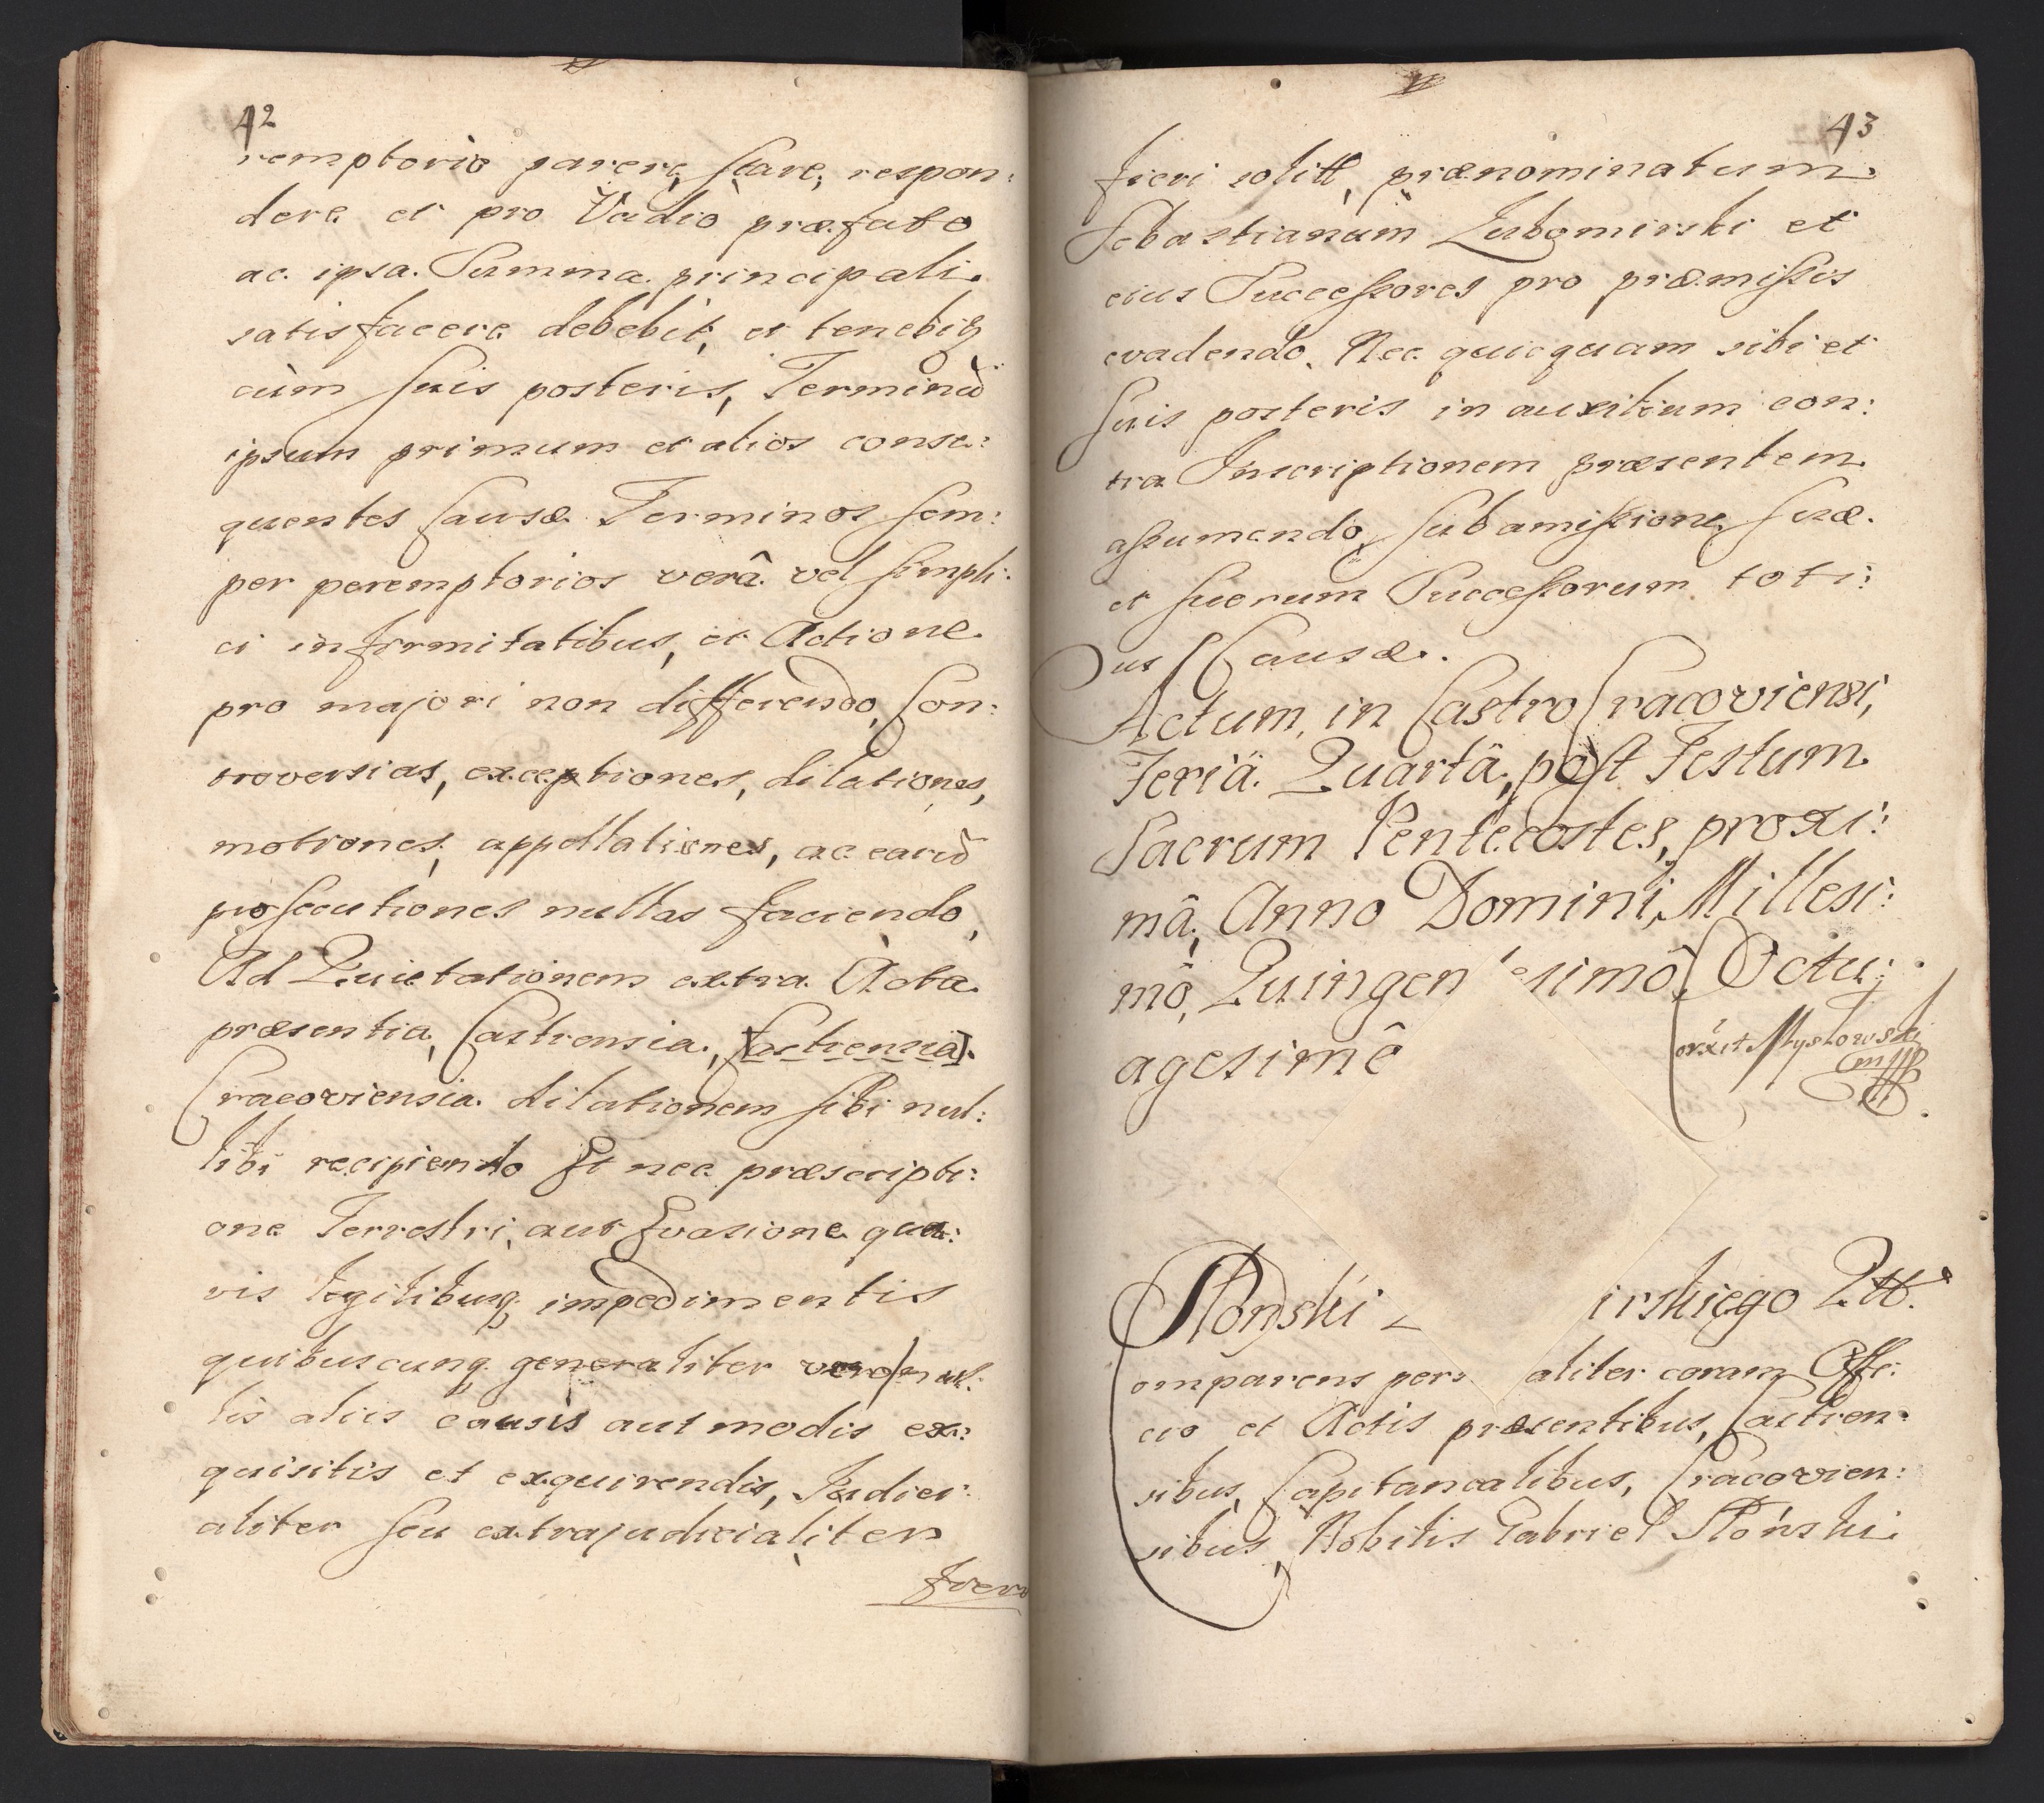 42
remptorio parere, stare, respon:
dere et pro Vadio præfato
ac ipsa Summa principali
satisfacere debebit, et tenebit~
cùm suis posteris, Terminũ
ipsum primum et alios conse:
quentes causæ Terminos sem:
per peremptorios verâ vel simpli:
ci infirmitatibus, et Actione
pro majori non differendo, Con:
troversias, exceptiones, dilationes,
motiones, appellationes, ac earũ
prosecutiones nullas faciendo,
Ad Quietationem extra Acta
præsentia, Castrensia, [Castrensia]
Cracoviensia dilationem sibi nul:
libi recipiendo Et nec præscripti:
one Terrestri, aut Evasione qua:
vis legilibusq; impedimentis
quibuscunq; generaliter vero nul:
lis aliis causis aut modis ex:
quisitis et exquirendis, Judici:
aliter seu extrajudicialiter
fieri
43
fieri solitt, prænominatum
Sebastianum Lubomirski et
eius Successores pro præmissis
evadendo. Nec quicquam sibi et
suis posteris in auxilium con:
tra Inscriptionem præsentem
assumendo, sub amissione suæ
et suorum Successorum toti:
us Causæ.
Actum, in Castro Cracoviensi,
Feriâ Quartâ, post Festum
Sacrum Pentecostes, proxi:
mâ, Anno Domini, Millesi:
mô, Quingen esimô, Octu:
agesimô
Słonski irskiego Qtt.
omparens pers aliter coram Offi:
cio et Actis præsentibus, Castren:
sibus, Capitanealibus, Cracovien:
sibus, Nobilis Gabriel Słoński